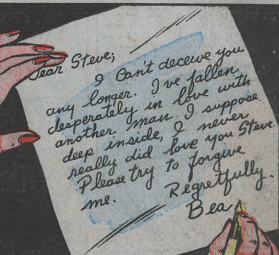 Dear Steve;
I Can't deceive you
any longer. I've fallen
desperately in love with
another man. I suppose
deep inside, I never
really did love you Steve.
Please try to forgive
me.
Regretfully.
Bea